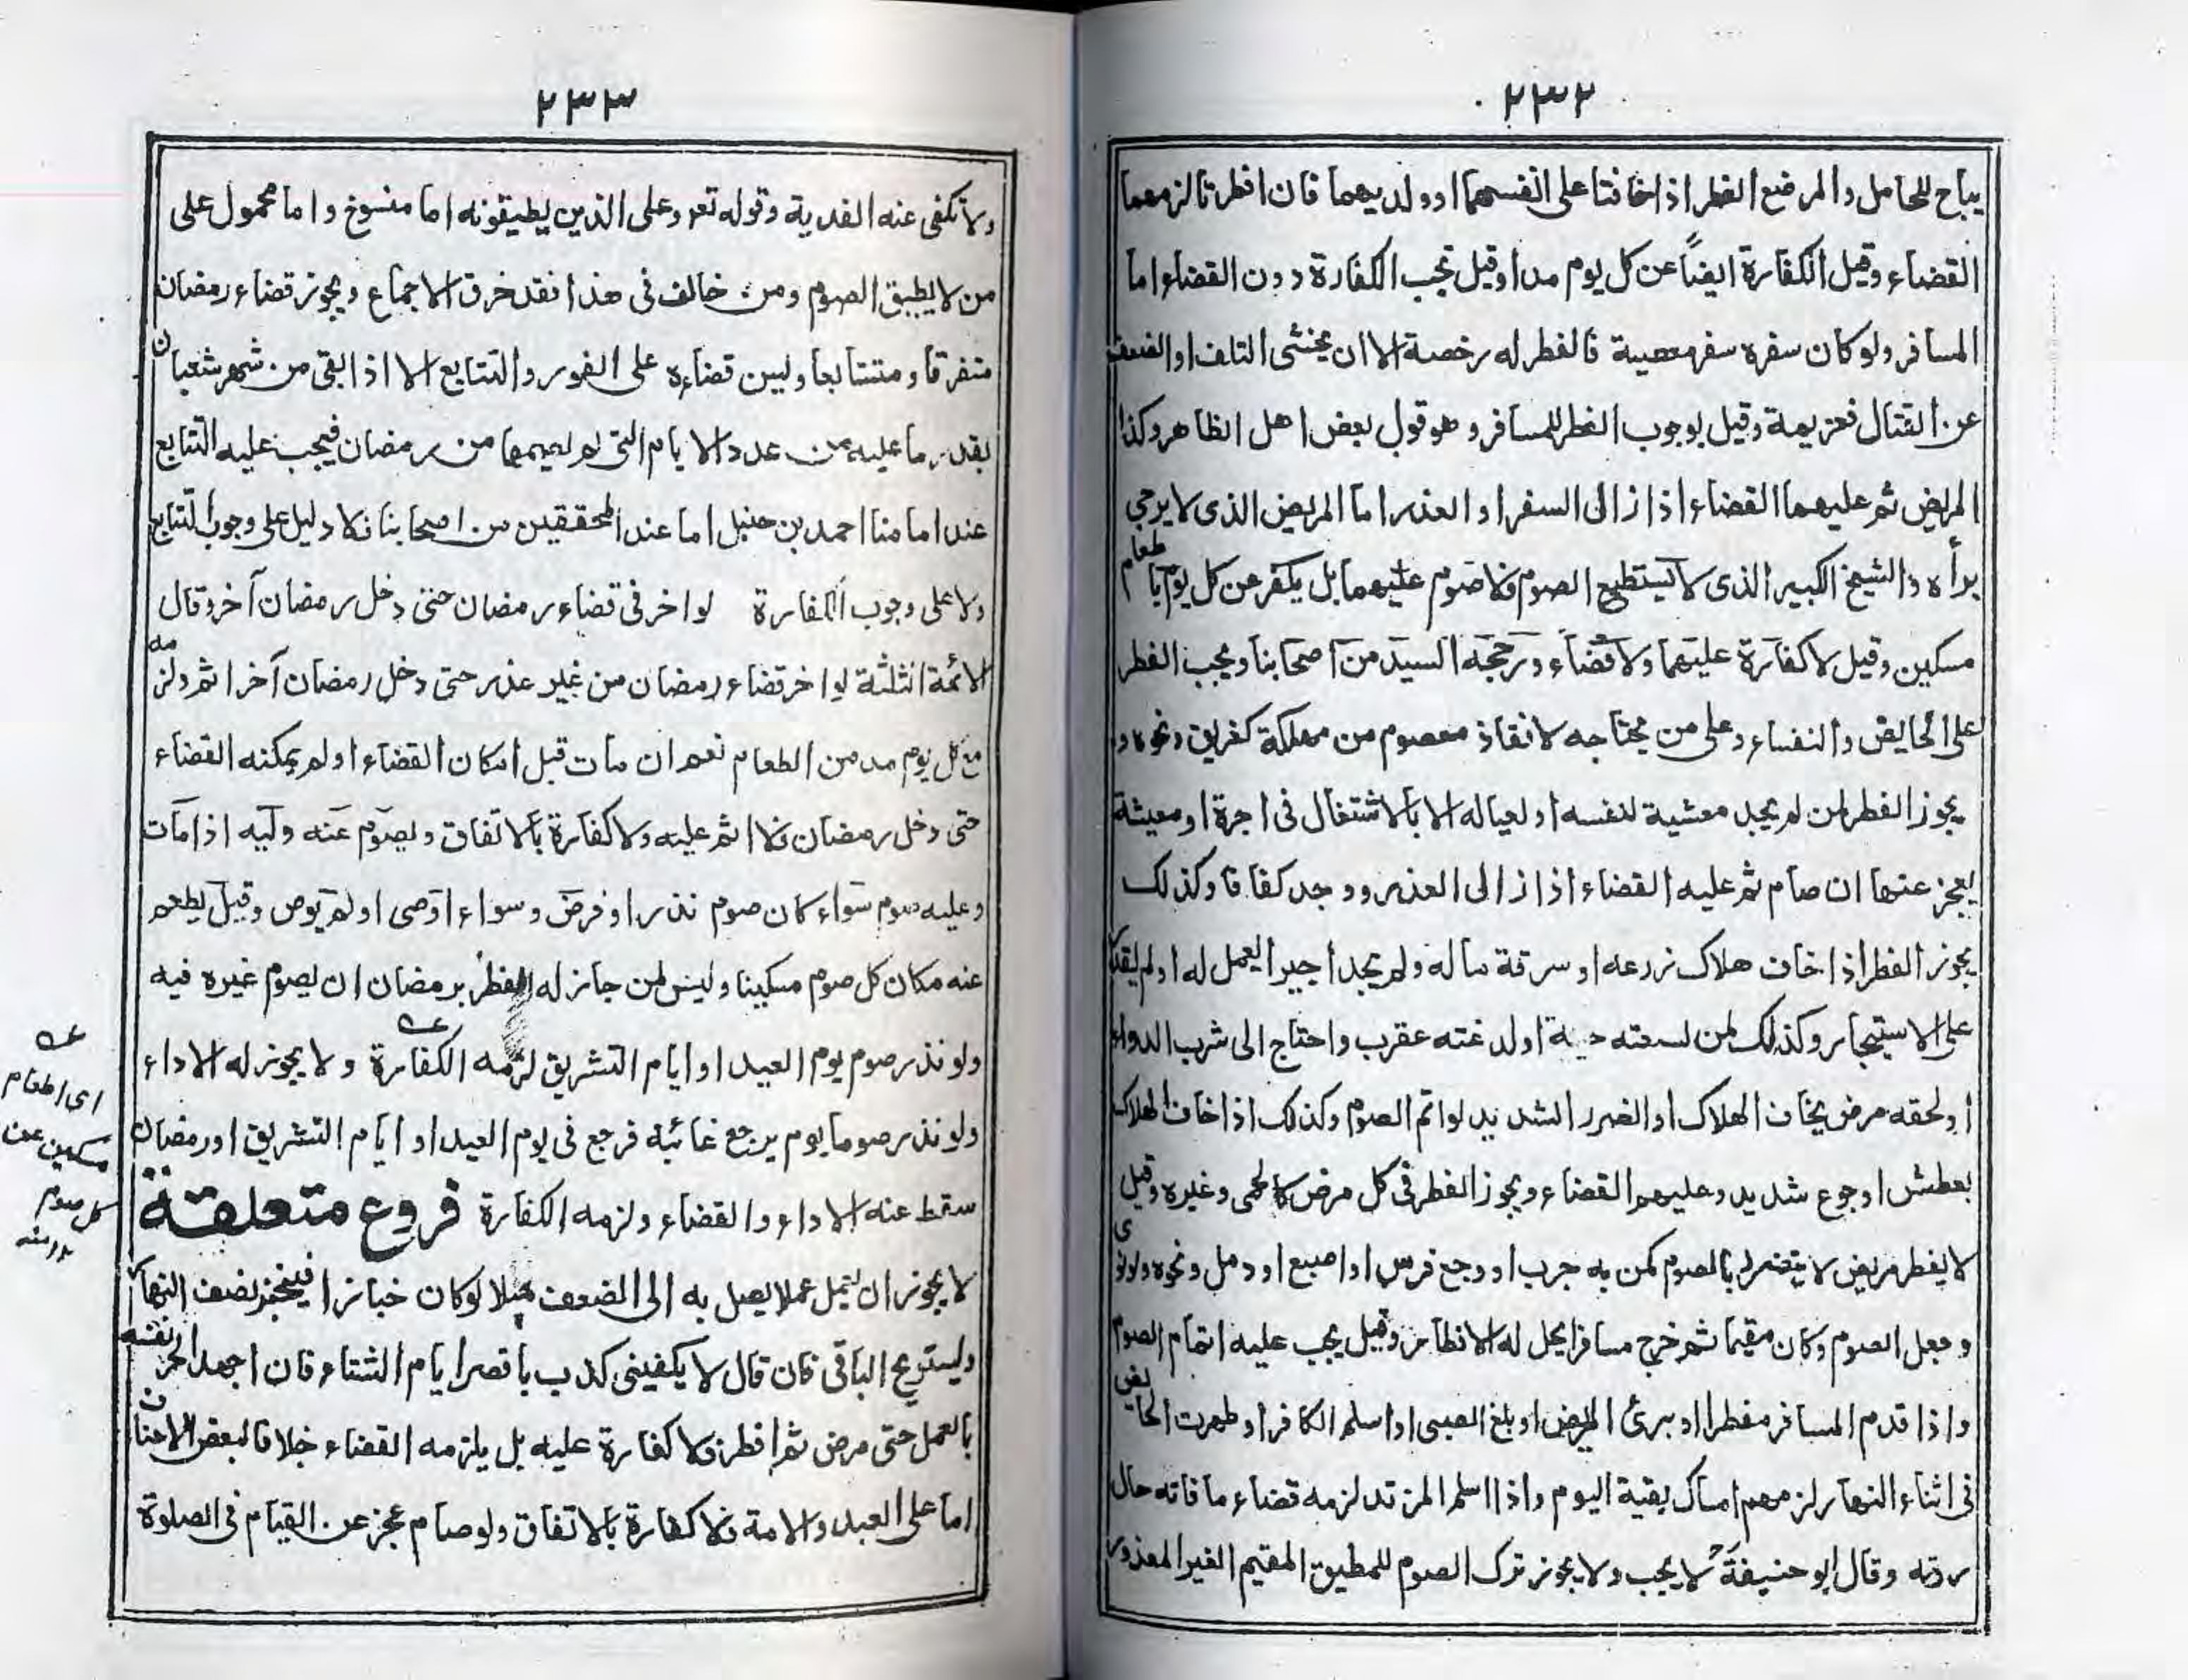 ٢٣٢
يباح للحامل والمرضع الفطر اذا خافتا على انفسهما او ولديهما فان افطرتا لزمهما
القضاء وقيل الكفارة ايضاً عن كل يوم مدا وقيل تجب الكفارة دون القضاء اما
المسافر ولو كان سفره سفر معصية فالفطر له رخصة الا ان يخشى التلف او الضعف
عن القتال فعزيمة وقيل بوجوب الفطر للمسافر وهو قول بعض اهل الظاهر وكذا
المريض ثم عليهما القضاء اذا زال السفر او العذر اما المريض الذى لا يرجى
برأه والشيخ الكبير الذى لا يستطيع الصوم فلا صوم عليهما بل يكفر عن كل يوم باطعام
مسكين وقيل لا كفارة عليهما ولا قضاء ورجحه السيد من اصحابنا ويجب الفطر
على الحايض والنفساء وعلى من يحتاجه لانقاذ معصوم من مهلكة كغريق ونحوه و
يجوز الفطر لمن لم يجد معشية لنفسه او لعياله الا بالاشتغال فى اجرة او معيشة
يعجز عنها ان صام ثم عليه القضاء اذا زال العذر ووجد كفافا وكذلك
يجوز الفطر اذا خاف هلاك زرعه او سرقة ماله ولم يجد اجيرا ليعمل له او لم يقدر
على الاستيجار وكذلك لمن لسعته حية او لدغته عقرب واحتاج الى شرب الدواء
او لحقه مرض يخاف الهلاك او الضرر الشديد لو اتم الصوم وكذلك اذا خاف الهلاك
بعطش او جوع شديد وعليهم القضاء ويجوز الفطر فى كل مرض كالحمى وغيره وقيل
لا يفطر مريض لا يتضرر بالصوم كمن به جرب او وجع ضرس او اصبع او دمل ونحوه ولو نوى
وجعل الصوم وكان مقيما ثم خرج مسافرا يحل له الافطار وقيل يجب عليه اتمام الصوم
واذا قدم المسافر مفطرا او برئ المريض او بلغ الصبى او اسلم الكافر او طهرت الحايض
فى اثناء النهار لزمهم امساك بقية اليوم واذا اسلم المرتد لزمه قضاء ما فاته حال
ردته وقال ابو حنيفة رح لا يجب ولا يجوز ترك الصوم للمطيق المقيم الغير المعذور
٢٣٣
ولا تكفى عنه الفدية وقوله تعه وعلى الذين يطيقونه اما منسوخ واما محمول على
من لا يطيق الصوم ومن خالف فى هذا فقد خرق الاجماع ويجوز قضاء رمضان
متفرقا ومتتابعا وليس قضاءه على الفور والتتابع الا اذا بقى من شهر شعبان
بقدر ما عليه من عدد الايام التى لم يصمها من رمضان فيجب عليه التتابع
عند امامنا احمد بن حنبل اما عند المحققين من اصحابنا فلا دليل على وجوب التتابع
ولا على وجوب الكفارة لو اخر فى قضاء رمضان حتى دخل رمضان آخر وقال
الائمة الثلثة لو اخر قضاء رمضان من غير عذر حتى دخل رمضان آخر اثم ولزمه
مع كل يوم مد من الطعام نعم ان مات قبل امكان القضاء او لم يمكنه القضاء
حتى دخل رمضان فلا اثم عليه ولا كفارة بالاتفاق ويصوم عنه وليه اذا مات
وعليه صوم سواء كان صوم نذر او فرض وسواء اوصى او لم يوص وقيل يطعم
عنه مكان كل صوم مسكينا وليس لمن جاز له الفطر برمضان ان يصوم غيره فيه
ولو نذر صوم يوم العيد او ايام التشريق لزمه الكفارة ولا يجوز له الاداء
ولو نذر صوما يوم يرجع غائبه فرجع فى يوم العيد او ايام التشريق او رمضان
سقط عنه الاداء والقضاء ولزمه الكفارة فروع متعلقة
لا يجوز ان يعمل عملا يصل به الى الضعف مثلا لو كان خبازا فيخبز نصف النهار
وليستريح الباقى فان قال لا يكفينى كذب باقصر ايام الشتاء فان اجهد الحر نفسه
بالعمل حتى مرض ثم افطر فلا كفارة عليه بل يلزمه القضاء خلافا لبعض الاحناف
اما على العبد والامة فلا كفارة بالاتفاق ولو صام عجز عن القيام فى الصلوة
اى اطعام
مسكين عن
كل صوم